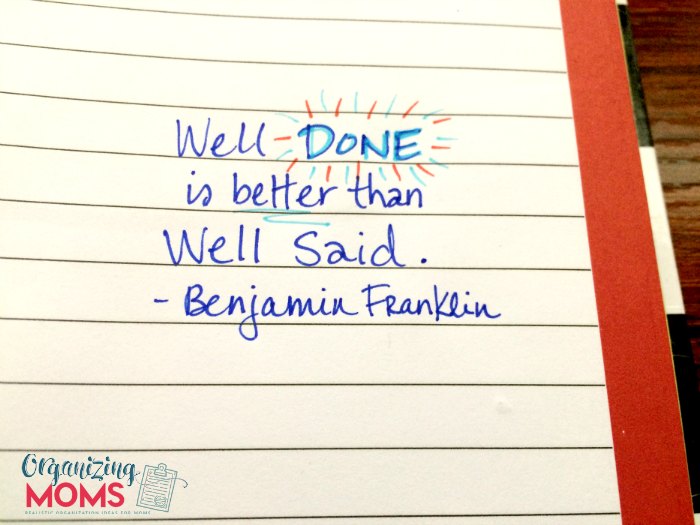 Well DONE
is better than
Well Said.
- Benjamin Franklin
Organizing
MOMS
REALISTIC ORGANIZATION IDEAS FOR MOMS